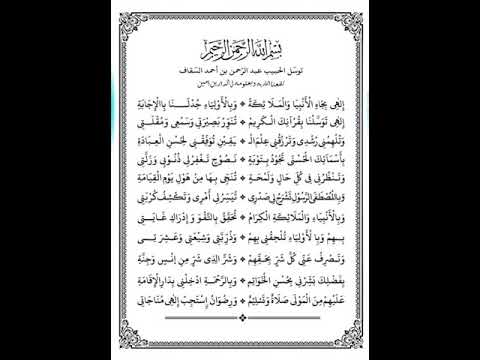 بِسْمِ اللهِ الرَّحْمٰنِ الرَّحِيْمِ
توسّل الحبيب عبد الرّحمن بن أحمد السّقاف
إِلٰهِى بِجَاهِ الْأَنْبِيَا وَالْمَلَائِكَةْ ❖ وَبِالْأَوْلِيَاءِ جُدْ لَنَا بِالْإِجَابَةِ
إِلٰهِى تَوَسَّلْنَا بِقُرْآنِكَ الْكَرِيْمِ ❖ تُنَوِّرْ بَصِيْرَتِى وَسَمْعِى وَمُقْلَتِى
وَتُلْهِمْنِى رُشْدِى وَتَرْزُقْنِى عِلْمَ الْـ ❖ يَقِيْنِ تُوَفِّقْنِى لِحُسْنِ الْعِبَادَةِ
بِأَسْمَائِكَ الْحُسْنٰى تَجُوْدُ بِتَوْبَةٍ ❖ نَصُوْحٍ تَغْفِرْ لِى ذُنُوْبِى وَزَلَّتِى
وَتَنْظُرْنِى فِى كُلِّ حَالٍ وَلَمْحَةٍ ❖ تُنَجِّى بِهَا مِنْ هَوْلِ يَوْمِ الْقِيَامَةِ
وَبِالْمُصْطَفَى الرَّسُوْلِ تَشْرَحْ لِى صَدْرِى ❖ تُيَسِّرْ لِى أَمْرِى وَتَكْشِفْ كُرْبَتِى
وَبِالْأَنْبِيَاءِ وَالْمَلَائِكَةِ الْكِرَامِ ❖ تُحَقِّقْ بِالتَّقْوٰى وَإِدْرَاكِ غَايَتِى
بِهِمْ وَبِالْأَوْلِيَاءِ تُلْحِقْنِى بِهِمْ ❖ وَذُرِّيَّتِى وَشِيْعَتِى وَعَشِيْرَتِى
وَتَصْرِفْ عَنِّى كُلَّ شَرٍّ بِحَقِّهِمْ ❖ وَشَرَّ الَّذِى شَرٍّ مِنْ إِنْسٍ وَجِنَّةِ
بِفَضْلِكَ بَشِّرْنِى بِحُسْنِ الْخَوَاتِمِ ❖ وَبِالرَّحْمَةِ ادْخِلْنِى بِدَارِ الْإِقَامَةِ
عَلَيْهِمْ مِنَ الْمَوْلٰى صَلَاةٌ وَتَسْلِيْمٌ ❖ وَرِضْوَانٌ إِسْتَجِبْ إِلٰهِى مُنَاجَاتِى